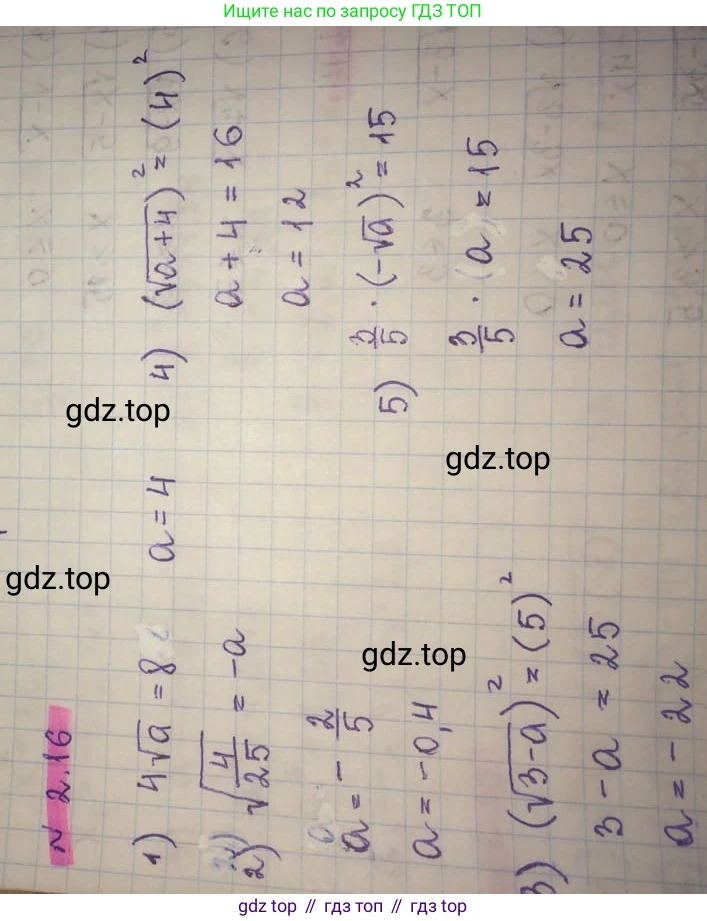 Ищите нас по запросу ГДЗ ТОП
N 2.16
1) 4√a = 8 a = 4
2) √(4/25) = -a
a = - 2/5
a = -0,4
3) (√(3-a))² = (5)²
3 - a = 25
a = -22
4) (√(a+4))² = (4)²
a + 4 = 16
a = 12
5) 3/5 · (-√a)² = 15
3/5 · (a = 15
a = 25
gdz.top
gdz.top
gdz.top
gdz.top
gdz.top // гдз топ // gdz.top // гдз топ // gdz.top